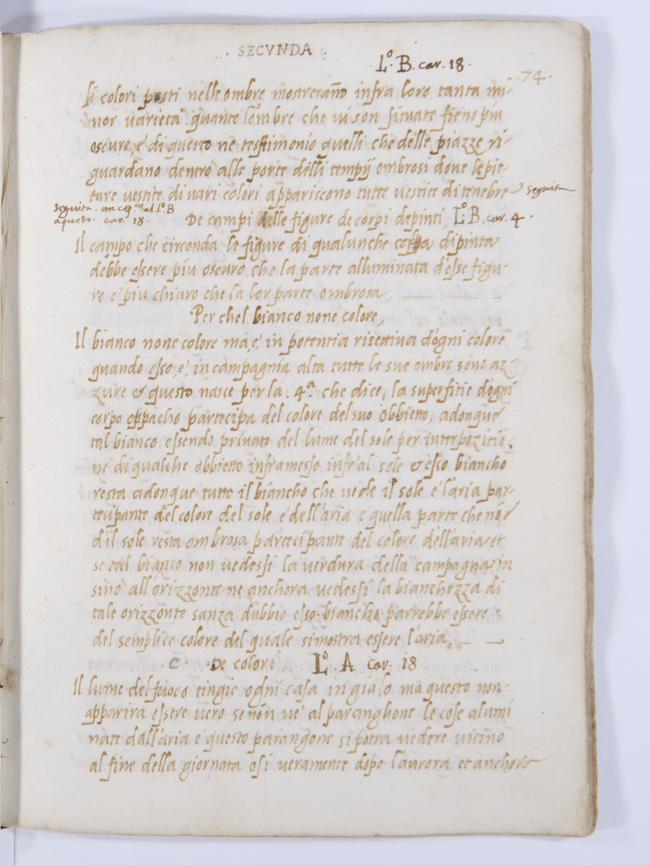 . SECVNDA .
L.º B. car. 18.
74.
li colori posti nelle ombre mostreranno infra loro tanta mi-
nor varieta quanto lombre che vi son situate fieno piu
oscure, e di questo ne testimonio quelli che delle piazze ri-
guardano dentro alle porte delli tempij ombrosi dove le pit-
ture vestite di vari colori appariscono tutte vestite di tenebre seguita
seguita al l.º B
a questo. car. 18.
De campi delle figure de corpi dipinti, L.º B. car. 4.
Il campo che circonda le figure di qualunche dipinta
debbe essere piu oscuro che la parte alluminata d'esse figu-
re e piu chiaro che la lor parte ombrosa,
Per chel bianco none colore,
Il bianco none colore ma e' in potentia ricettiva d'ogni colore
quando esso, e' in campagnia alta tutte le sue ombre sono az-
zure & questo nasce per la .4.ª che dice, la superfitie d'ogni
corpo oppacho partecipa del colore del suo obbietto, adonque
tal bianco essendo privato del lume del sole per interpozitio-
ne di qualche obbietto inframesso infra'l sole & esso biancho
resta adonque tutto il biancho che vede il sole e l'aria par-
tecipante del colore del sole e dell'aria e quella parte che nō e
d il sole resta ombrosa partecipante del colore dell'aria et
se tal bianco non vedessi la verdura della campagna in
sino all'orizzonte ne anchora vedessi la bianchezza di
tale orizzonte sanza dubbio esso biancho parrebbe essere
del semplice colore del quale si mostra essere l'aria,
De colori L.º A. car. 18
Il lume del fuoco tingie ogni casa in gialo ma questo non
apparira essere vero se non ve' al paranghone le cose alumi
nate dall'aria e questo parangone si potra vedere vicino
al fine della giornata o si veramente dopo l'aurora et anchora